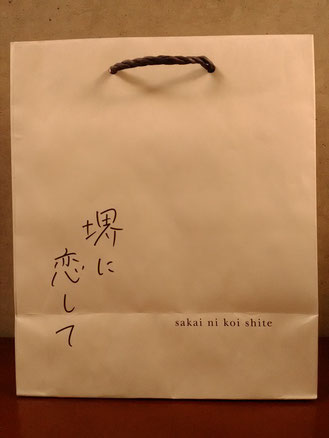 堺に
恋して
sakai ni koi shite